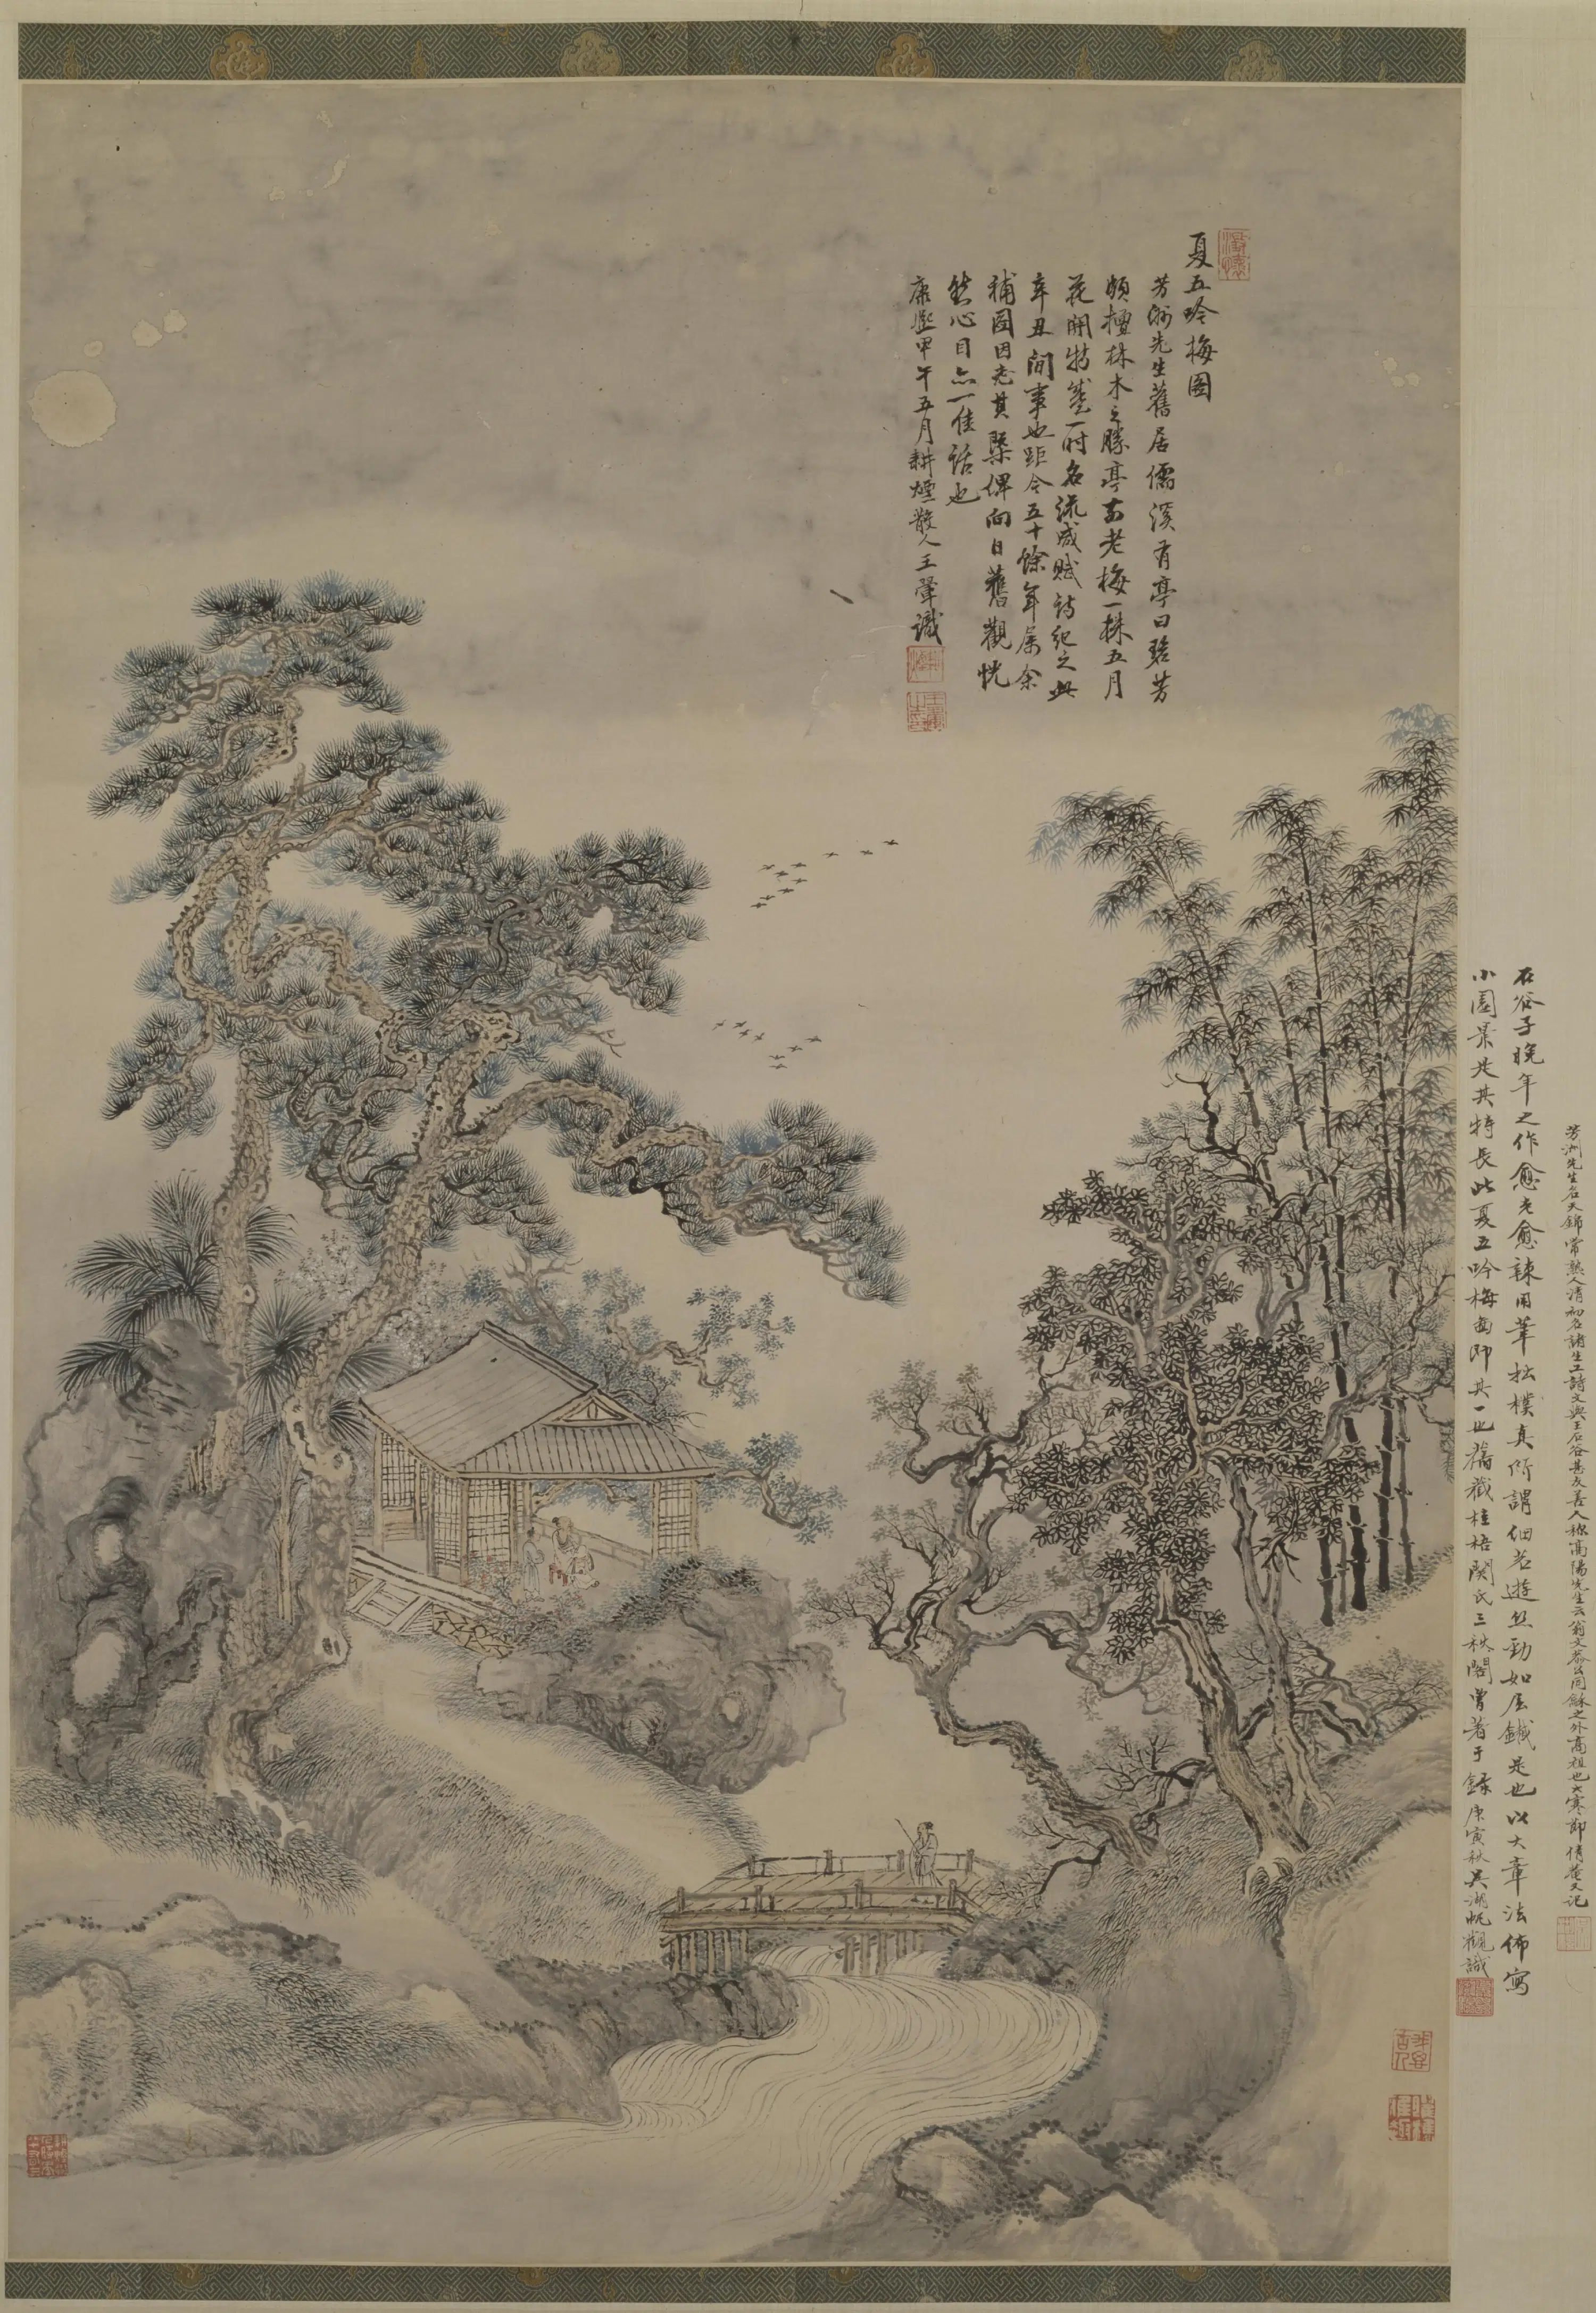 夏五吟梅圖
芳洲先生舊居儒溪有亭曰碧芳
頗擅林木之勝亭前老梅一株五月
花開特盛一時名流咸賦詩紀之此
辛丑間事也距今五十餘年屬余
補圖因志其槩俾向日舊觀恍
然心目亦一佳話也
康熙甲午五月耕煙散人王翬識
石谷子晚年之作愈老愈辣用筆松樸真所謂細若遊絲勁如屈鐵是也以大章法佈寫
小園景尤其特長此夏五吟梅圖即其一也舊藏桂梧關氏三秋閣曾著于錄庚寅秋吳湖帆觀識
芳洲先生名天錦常熟人清初名諸生工詩文與王石谷甚友善人稱高陽先生云翁文恭公同龢之外高祖也大寒節倩菴又記